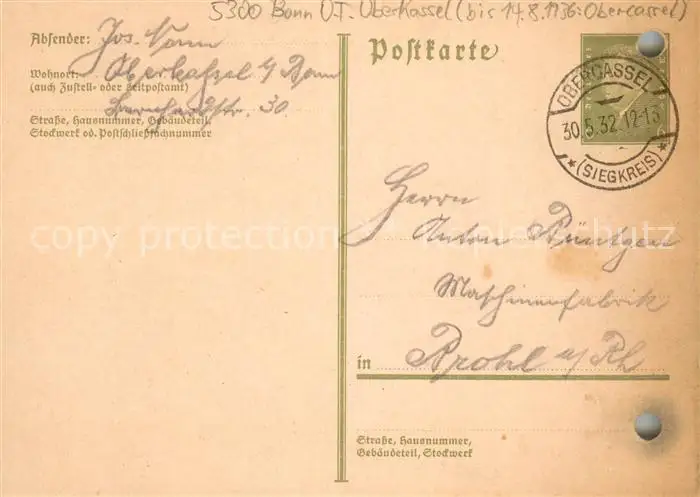 5300 Bonn O.T. Oberkassel (bis 14.8.1936: Obercassel)
Absender: Jos. Nonn
Wohnort: Oberkassel b/ Bonn
(auch Zustell- oder Leitpostamt)
Str. 30
Straße, Hausnummer, Gebäudeteil,
Stockwerk od. Postschließfachnummer
Postkarte
OBERCASSEL
30.5.32.12-13
*(SIEGKREIS)*
Herrn
Anton Röntgen
copy protection for watermark schutz
Maschinenfabrik
in Brohl a/ Rh.
Straße, Hausnummer,
Gebäudeteil, Stockwerk